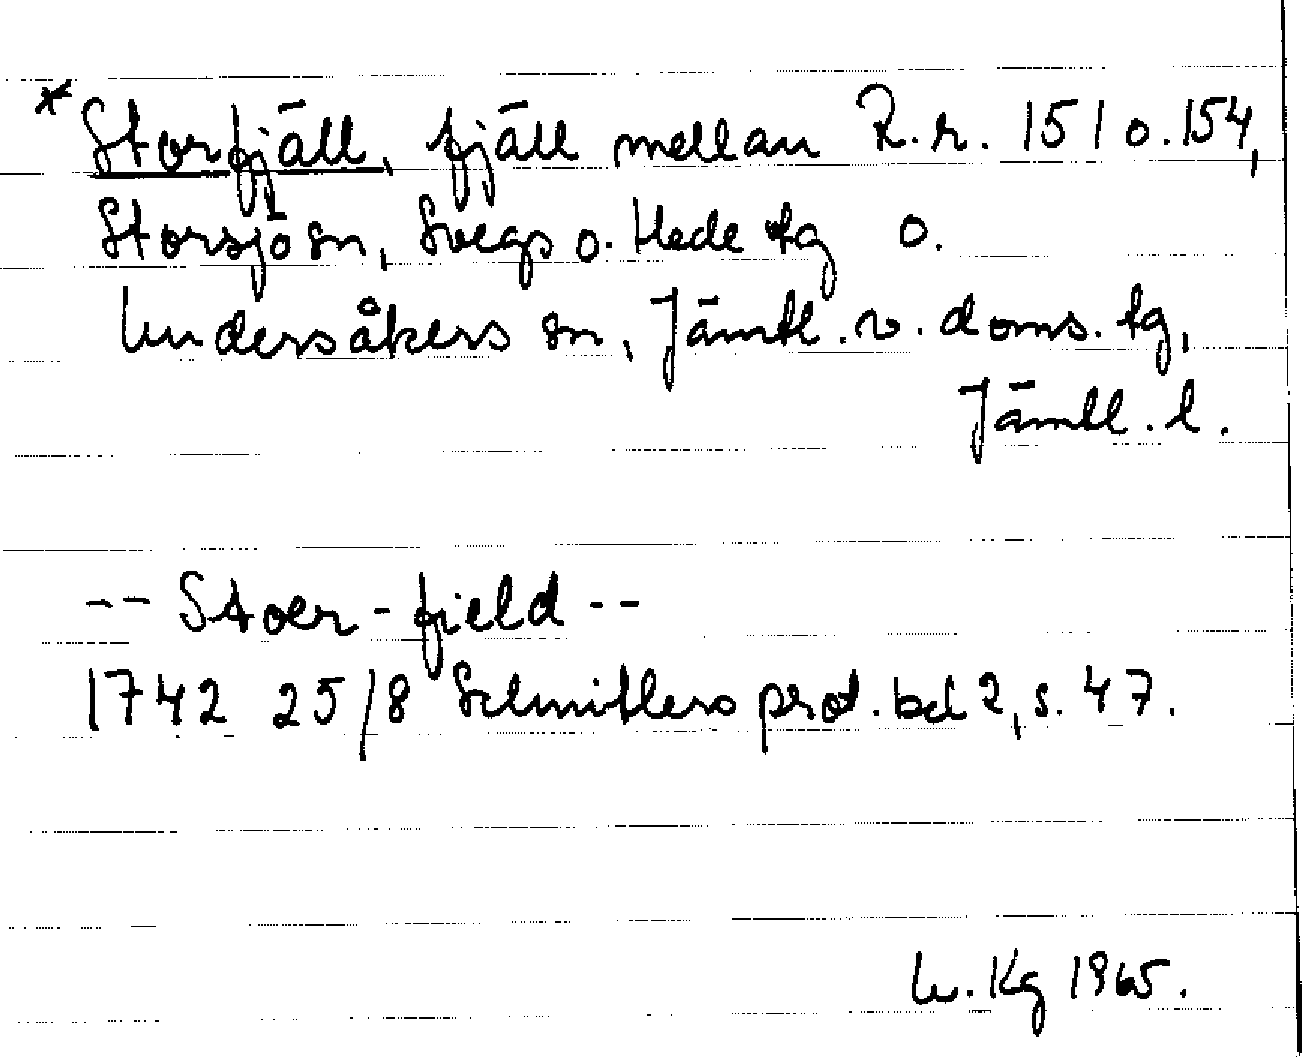 * Storfjäll, fjäll mellan R.r. 151 o. 154,
Storsjö sn, Svegs o. Hede tg o.
Undersåkers sn, Jämtl. v. doms. tg,
Jämtl. l.
-- Stoer-field --
1742 25/8 Schnitlers prot. bd 2, s. 47.
U. Kg 1965.